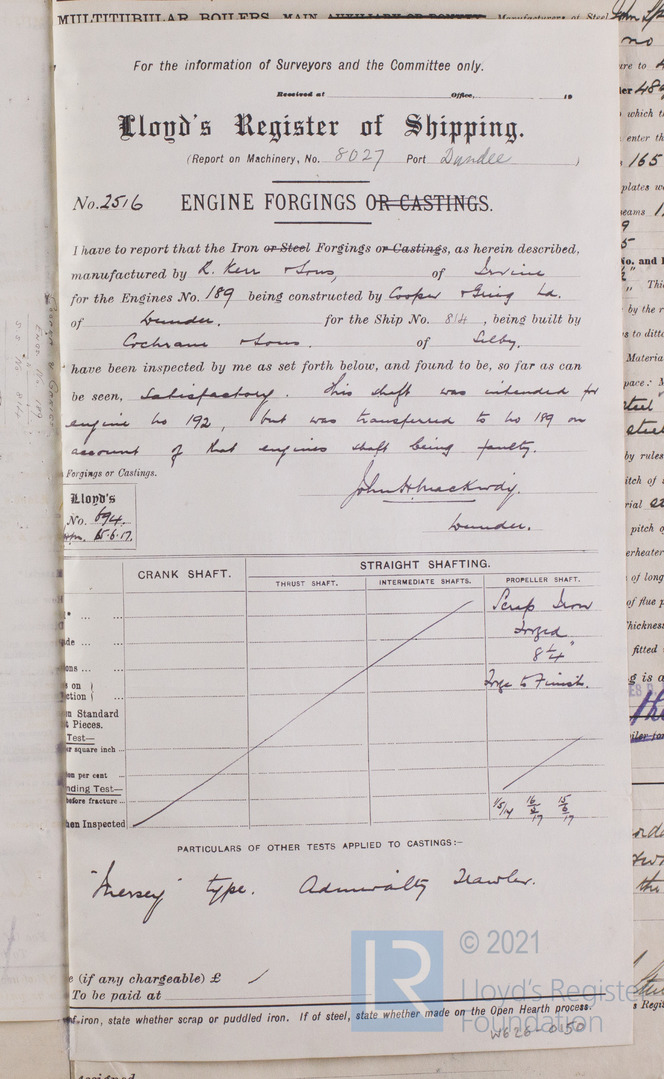 MULTITUBULAR BOILERS, MAIN, AUXILIARY OR DONKEY. Manufacturers of Steel
For the information of Surveyors and the Committee only.
Received at Office, 19
Lloyd's Register of Shipping.
(Report on Machinery, No. 8027 Port Dundee )
No. 2516 ENGINE FORGINGS OR CASTINGS.
I have to report that the Iron or Steel Forgings or Castings, as herein described,
manufactured by R. Kerr & Sons, of Irvine
for the Engines No. 189 being constructed by Cooper & Greig Ld.
of Dundee. for the Ship No. 814, being built by
Cochrane & Sons. of Selby.
have been inspected by me as set forth below, and found to be, so far as can
be seen, satisfactory. This shaft was intended for
engine No 192, but was transferred to No 189 on
account of that engines shaft being faulty.
Forgings or Castings.
Lloyd's
No. 694.
15.6.17.
Dundee.
CRANK SHAFT.
STRAIGHT SHAFTING.
THRUST SHAFT.
INTERMEDIATE SHAFTS.
PROPELLER SHAFT.
Scrap Iron
Forged
8 1/4"
Forge to Finish.
on Standard
Pieces.
Test—
square inch
per cent
nding Test—
before fracture
hen Inspected
15/6/17
PARTICULARS OF OTHER TESTS APPLIED TO CASTINGS:–
"Mersey" type. Admiralty Trawler.
e (if any chargeable) £
To be paid at
of iron, state whether scrap or puddled iron. If of steel, state whether made on the Open Hearth process.
© 2021
Lloyd's Register
Foundation
W626-0150